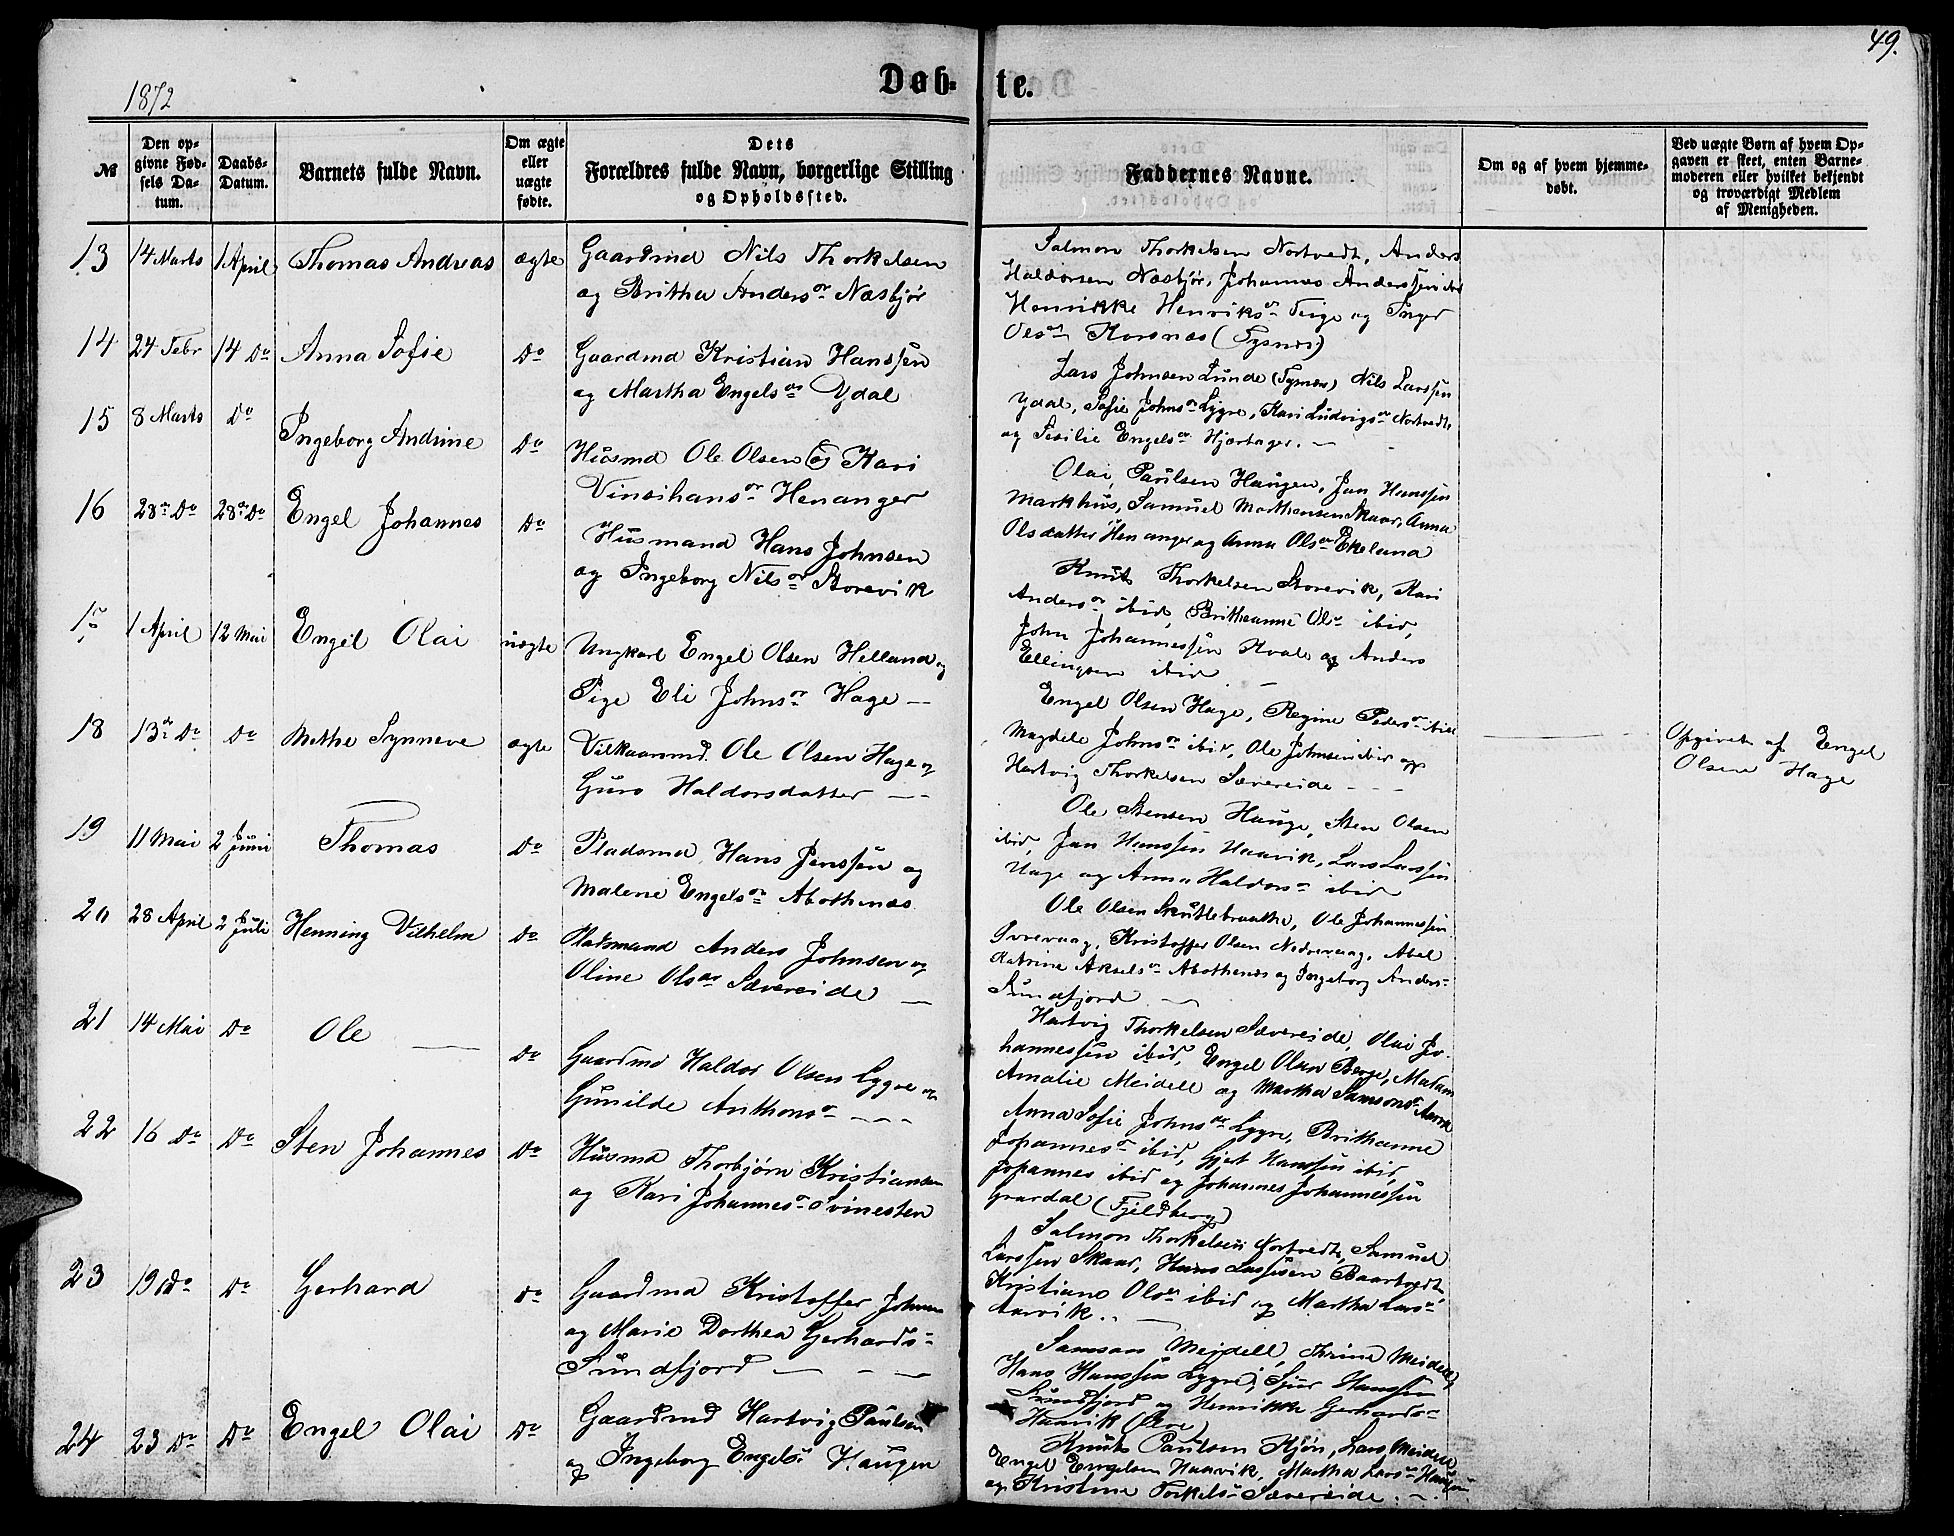 49.
1872
Døbte.
№
Den opgivne Fødsels Datum.
Daabs-Datum.
Barnets fulde Navn.
Om ægte eller uægte fødte.
Dets Forældres fulde Navn, borgerlige Stilling og Opholdssted.
Faddernes Navne.
Om og af hvem hjemmedøbt.
Ved uægte Børn af hvem Opgaven er skeet, enten Barnemoderen eller hvilket bekjendt og troværdigt Medlem af Menigheden.
13 14 Marts 1 April Thomas Andreas ægte Gaardmd Nils Thorkelsen
og Britha Andersdr Næsbjør
Salmon Thorkelsen Nortvedt, Anders
Haldorsen Næsbjør, Johannes Anderssen ibd
Henrikke Henriksdr Teige og Inger
Olsdr Korsnæs (Tysnes)
14 24 Febr 14 Do Anna Sofie Do Gaardmd Kristian Hanssen
og Martha Engelsdr Ydal
Lars Johnsen Lunde (Tysnæs) Nils Larssen
Ydal, Sofie Johnsdr Lygre, Kari Ludvigsdr Nortvedt,
og Sesilie Engelsdr Hjartager. —
15 8 Marts Do Ingeborg Andrine Do Husmd Ole Olsen og Kari
Vinsihansdr Henanger
Olai Paulsen Haugen, Jan Hanssen
Markhus, Samuel Mathensen Skaar, Anna
Olsdatter Henanger og Anna Olsdr Ekeland
16 28de Do 28de Do Engel Johannes Do Husmand Hans Johnsen
og Ingeborg Nilsdr Storevik
Knut Thorkelsen Storevik, Kari
Andersdr ibid, Brithanne Olsdr ibid,
John Johannessen Hvale og Anders
Ellingsen ibid —
17 1 April 12 Mai Engel Olai uægte Ungkarl Engel Olsen Helland og
Pige Eli Johnsdr Hage —
Engel Olsen Hage, Regine Pedersdr ibid
Magdele Johnsdr ibid, Ole Johnsen ibid og
Hartvig Thorkelsen Sævereide - - -
Opgivet af Engel
Olsen Hage
18 13de Do Do Methe Synneve ægte Vilkaarsmd Ole Olsen Hage og
Guro Haldorsdatter — —
Ole Stensen Hauge, Sten Olsen
ibid, Jan Hanssen Haavik, Lars Larssen
Hage og Anna Haldorsdr ibid
19 11 Mai 2 Juni Thomas Do Pladsmd Hans Jenssen og
Malene Engelsdr Abothenæs
Ole Olsen Skuttebraathe, Ole Johannessen
Kristoffer Olsen Nedrevaag, Abel
Katrine Akselsdr Abothenæs og Ingeborg Anders-
Sundfjord —
20 28 April 2 Juli Henning Vilhelm Do Pladsmand Anders Johnsen og
Oline Olsdr Sævereide —
Hartvig Thorkelsen Sævereide, Olai Jo-
hannessen ibid, Engel Olsen Berge, Madam
Amalie Meidell og Martha Samsonsdr
21 14 Mai Do Ole — Do Gaardmd Haldor Olsen Lygre og
Gunilde Anthonsdr — — —
Anna Sofie Johnsdr Lygre, Brithanne
Johannesdr ibid, Gjert Hanssen ibid,
Johannes ibid og Johannes Johannessen
Grardal (Fjeldberg)
22 16 Do Do Sten Johannes Do Husmd Thorbjørn Kristiansen
og Kari Johannesdr Svinesten
Salmon Thorkelsen Nortvedt, Samuel
Larssen Skaar, Hans Lassesen Baartvedt
Kristiane Olsdr ibid og Martha Larsdr
Aarvik. . —
23 19 Do Do Gerhard Do Gaardmd Kristoffer Johnsen
og Marie Dorthea Gerhards-
Sundfjord — — —
Samson Meidell, Trine Meidell,
Hans Hanssen Lygre, Sjur Hanssen
Sundfjord og Henrikke Gerhards-
Haavik (Ølve)
24 23 Do Do Engel Olai Do Gaardmd Hartvig Paulsen
og Ingeborg Engelsdr Haugen
Knut Paulsen Kjøn, Lars Meidell
Engel Engelsen Haavik, Martha Larsdr Haugen
og Kristine Torkelsdr Sævereide. —